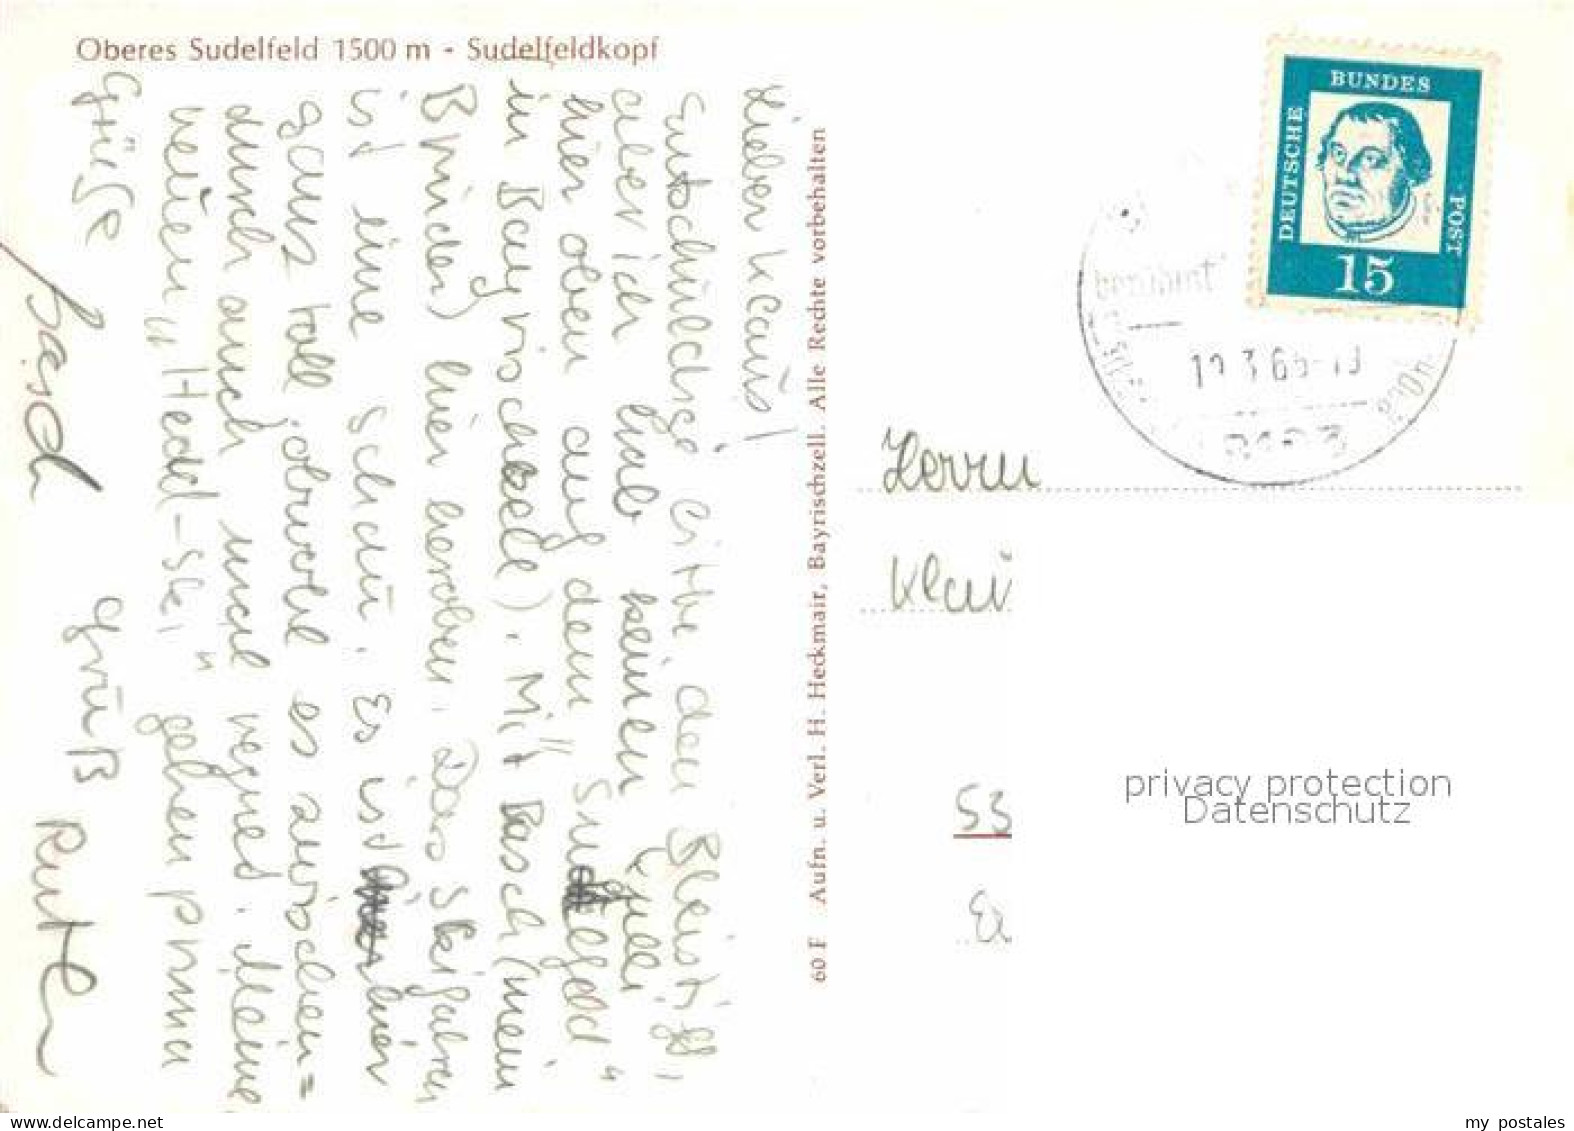 Oberes Sudelfeld 1500 m - Sudelfeldkopf
Lieber Klaus!
Entschuldige bitte den Bleistift,
aber ich hab keinen Kuli
hier oben auf dem „Sudelfeld"
in Bayrischzell). Mit Basch (mein
Bruder) hier heroben. Das Skifahren
ist eine Schau. Es ist hier
ganz toll, obwohl es zwischen=
durch auch mal regnet. Meine
neuen „Head-Ski" gehen prima
Grüße
Basch Gruß Ruth
60 F Aufn. u. Verl. H. Heckmair, Bayrischzell. Alle Rechte vorbehalten
DEUTSCHE
BUNDES
POST
15
berühmt
8183
Herrn
Klau
53
privacy protection
Datenschutz
my postales